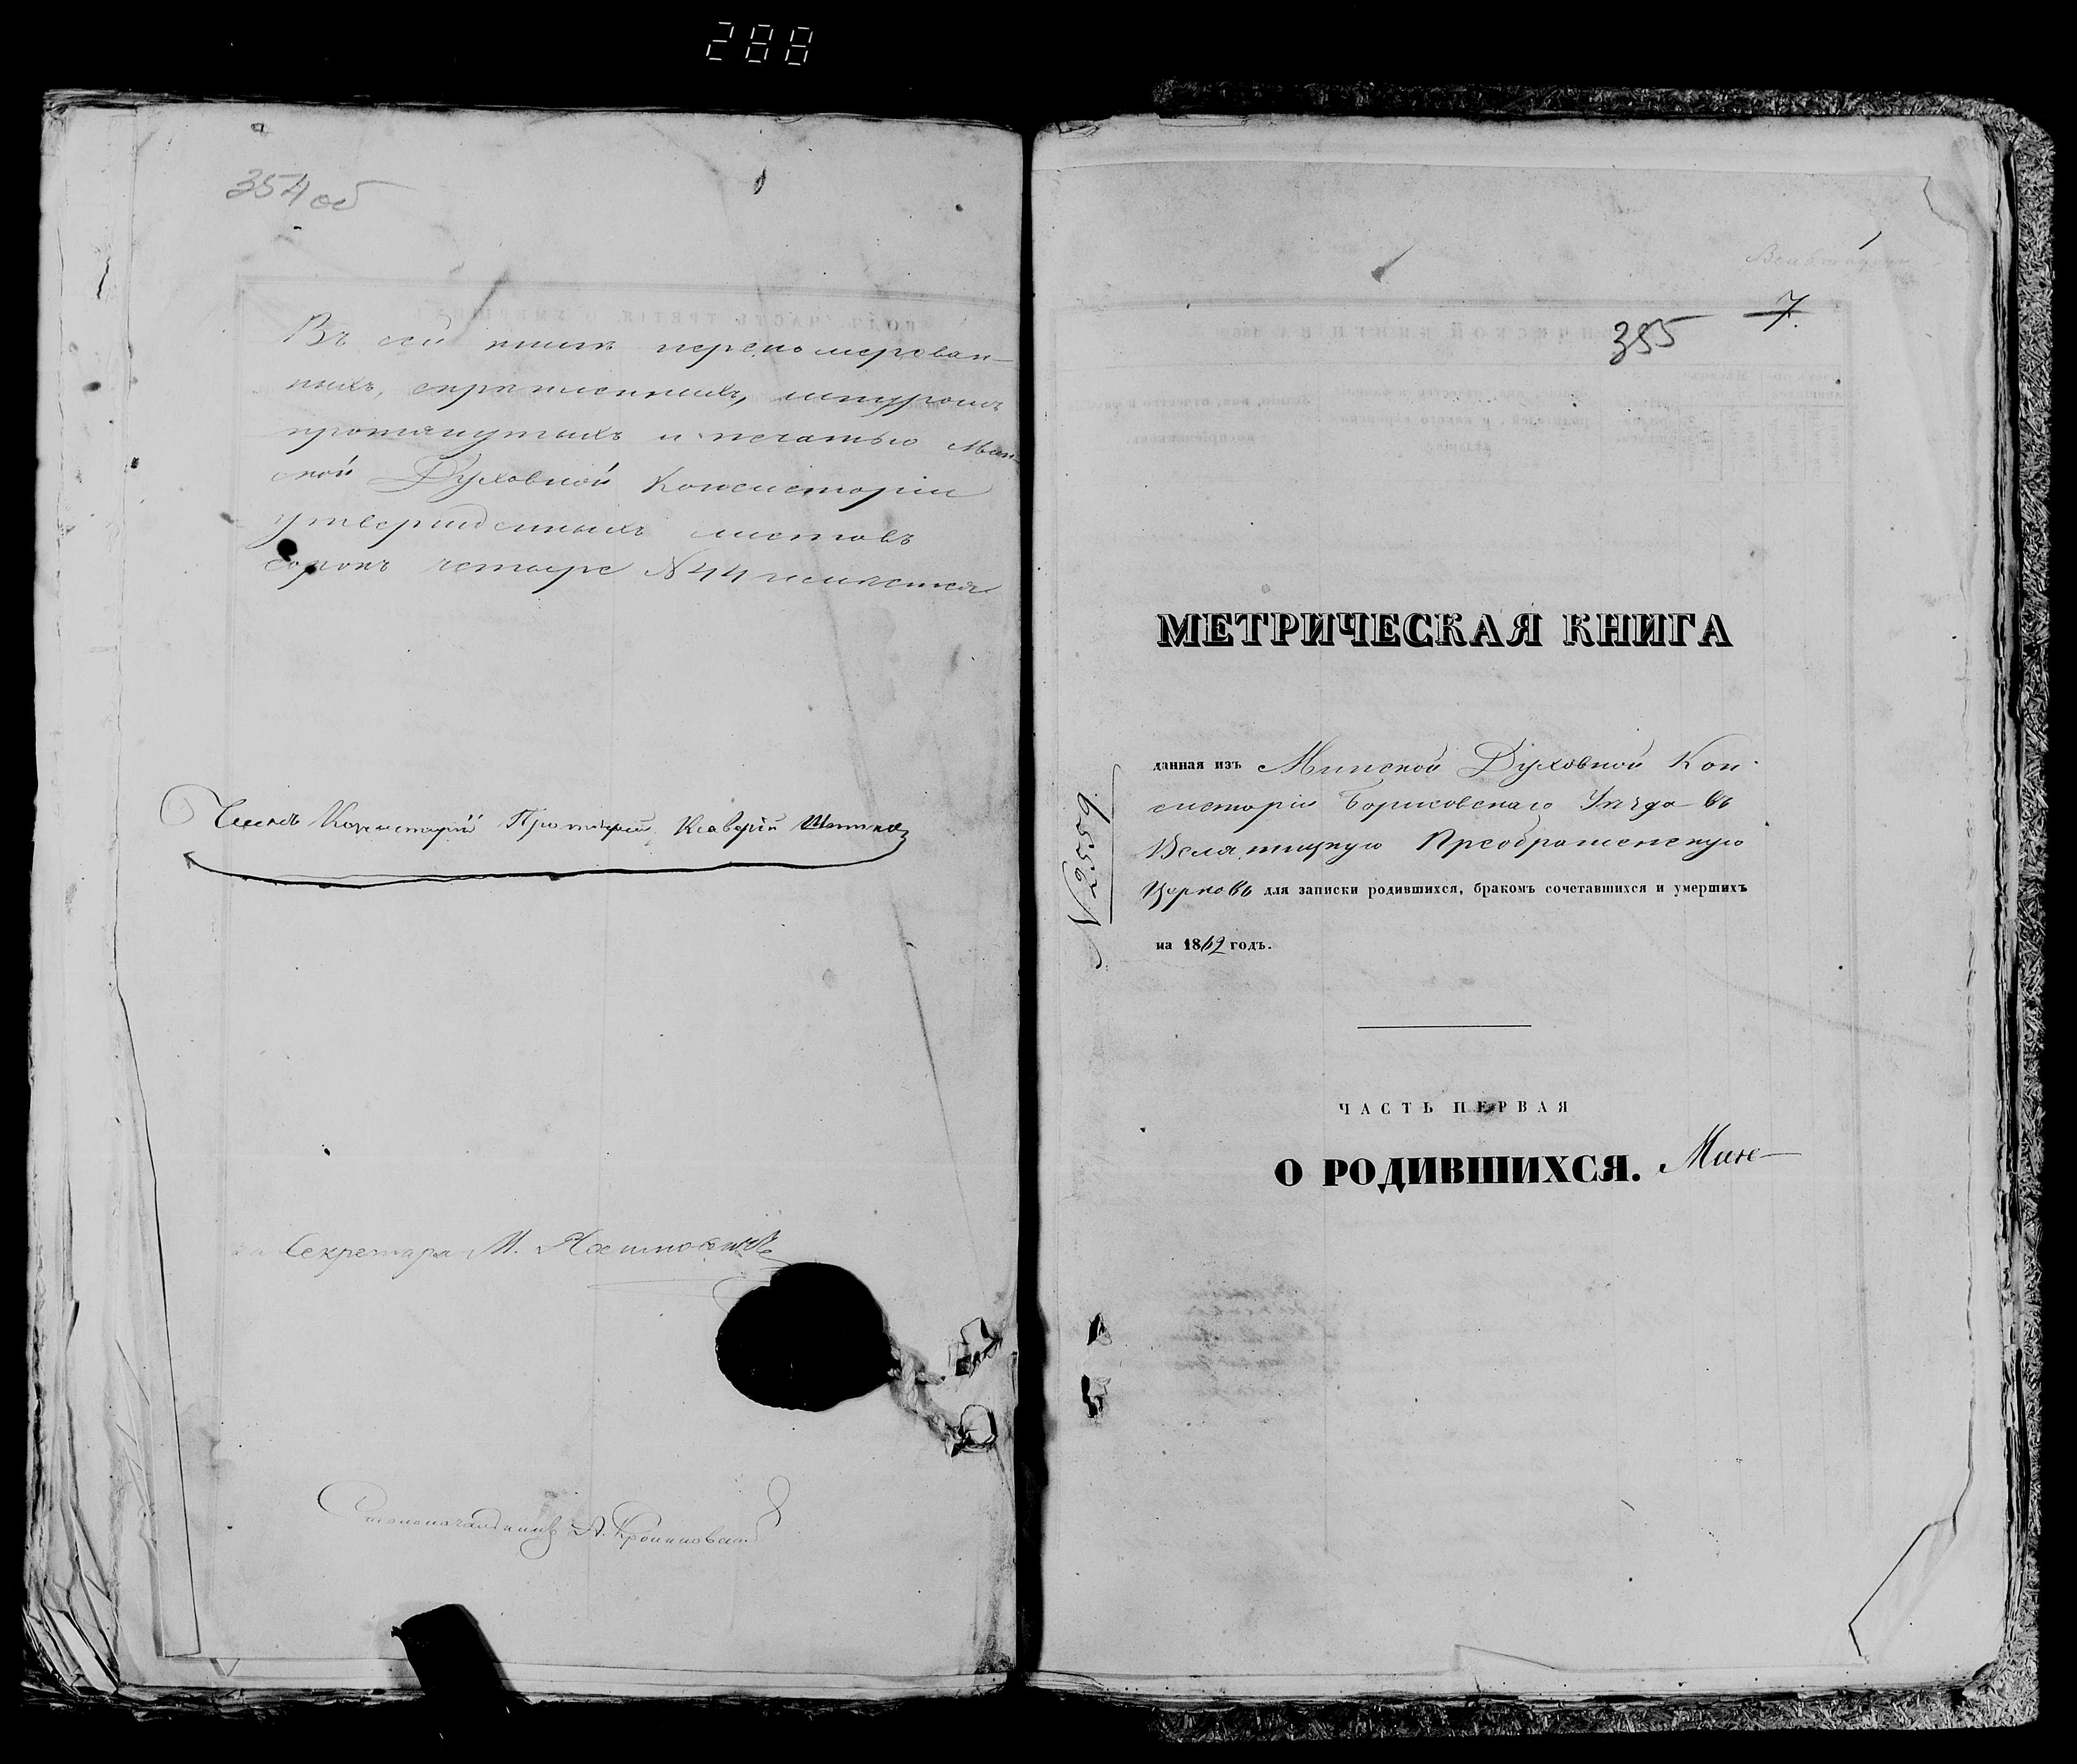 288
354 об
Въ сей книгѣ перенумерован-
ныхъ, скрѣпленныхъ, шнуромъ
протянутыхъ и печатью Мин-
ской Духовной Консисторіи
утвержденныхъ листовъ
сорокъ четыре N 44 имѣется
Членъ Консисторіи Протоіерей
за Секретаря М.
Столоначальникъ А.
7.
355
МЕТРИЧЕСКАЯ КНИГА
данная изъ Минской Духовной Кон-
систоріи Борисовскаго Уѣзда въ
Велятицкую Преображенскую
Церковь для записки родившихся, бракомъ сочетавшихся и умершихъ
на 1862 годъ.
N 6559
ЧАСТЬ ПЕРВАЯ
О РОДИВШИХСЯ. Мин-